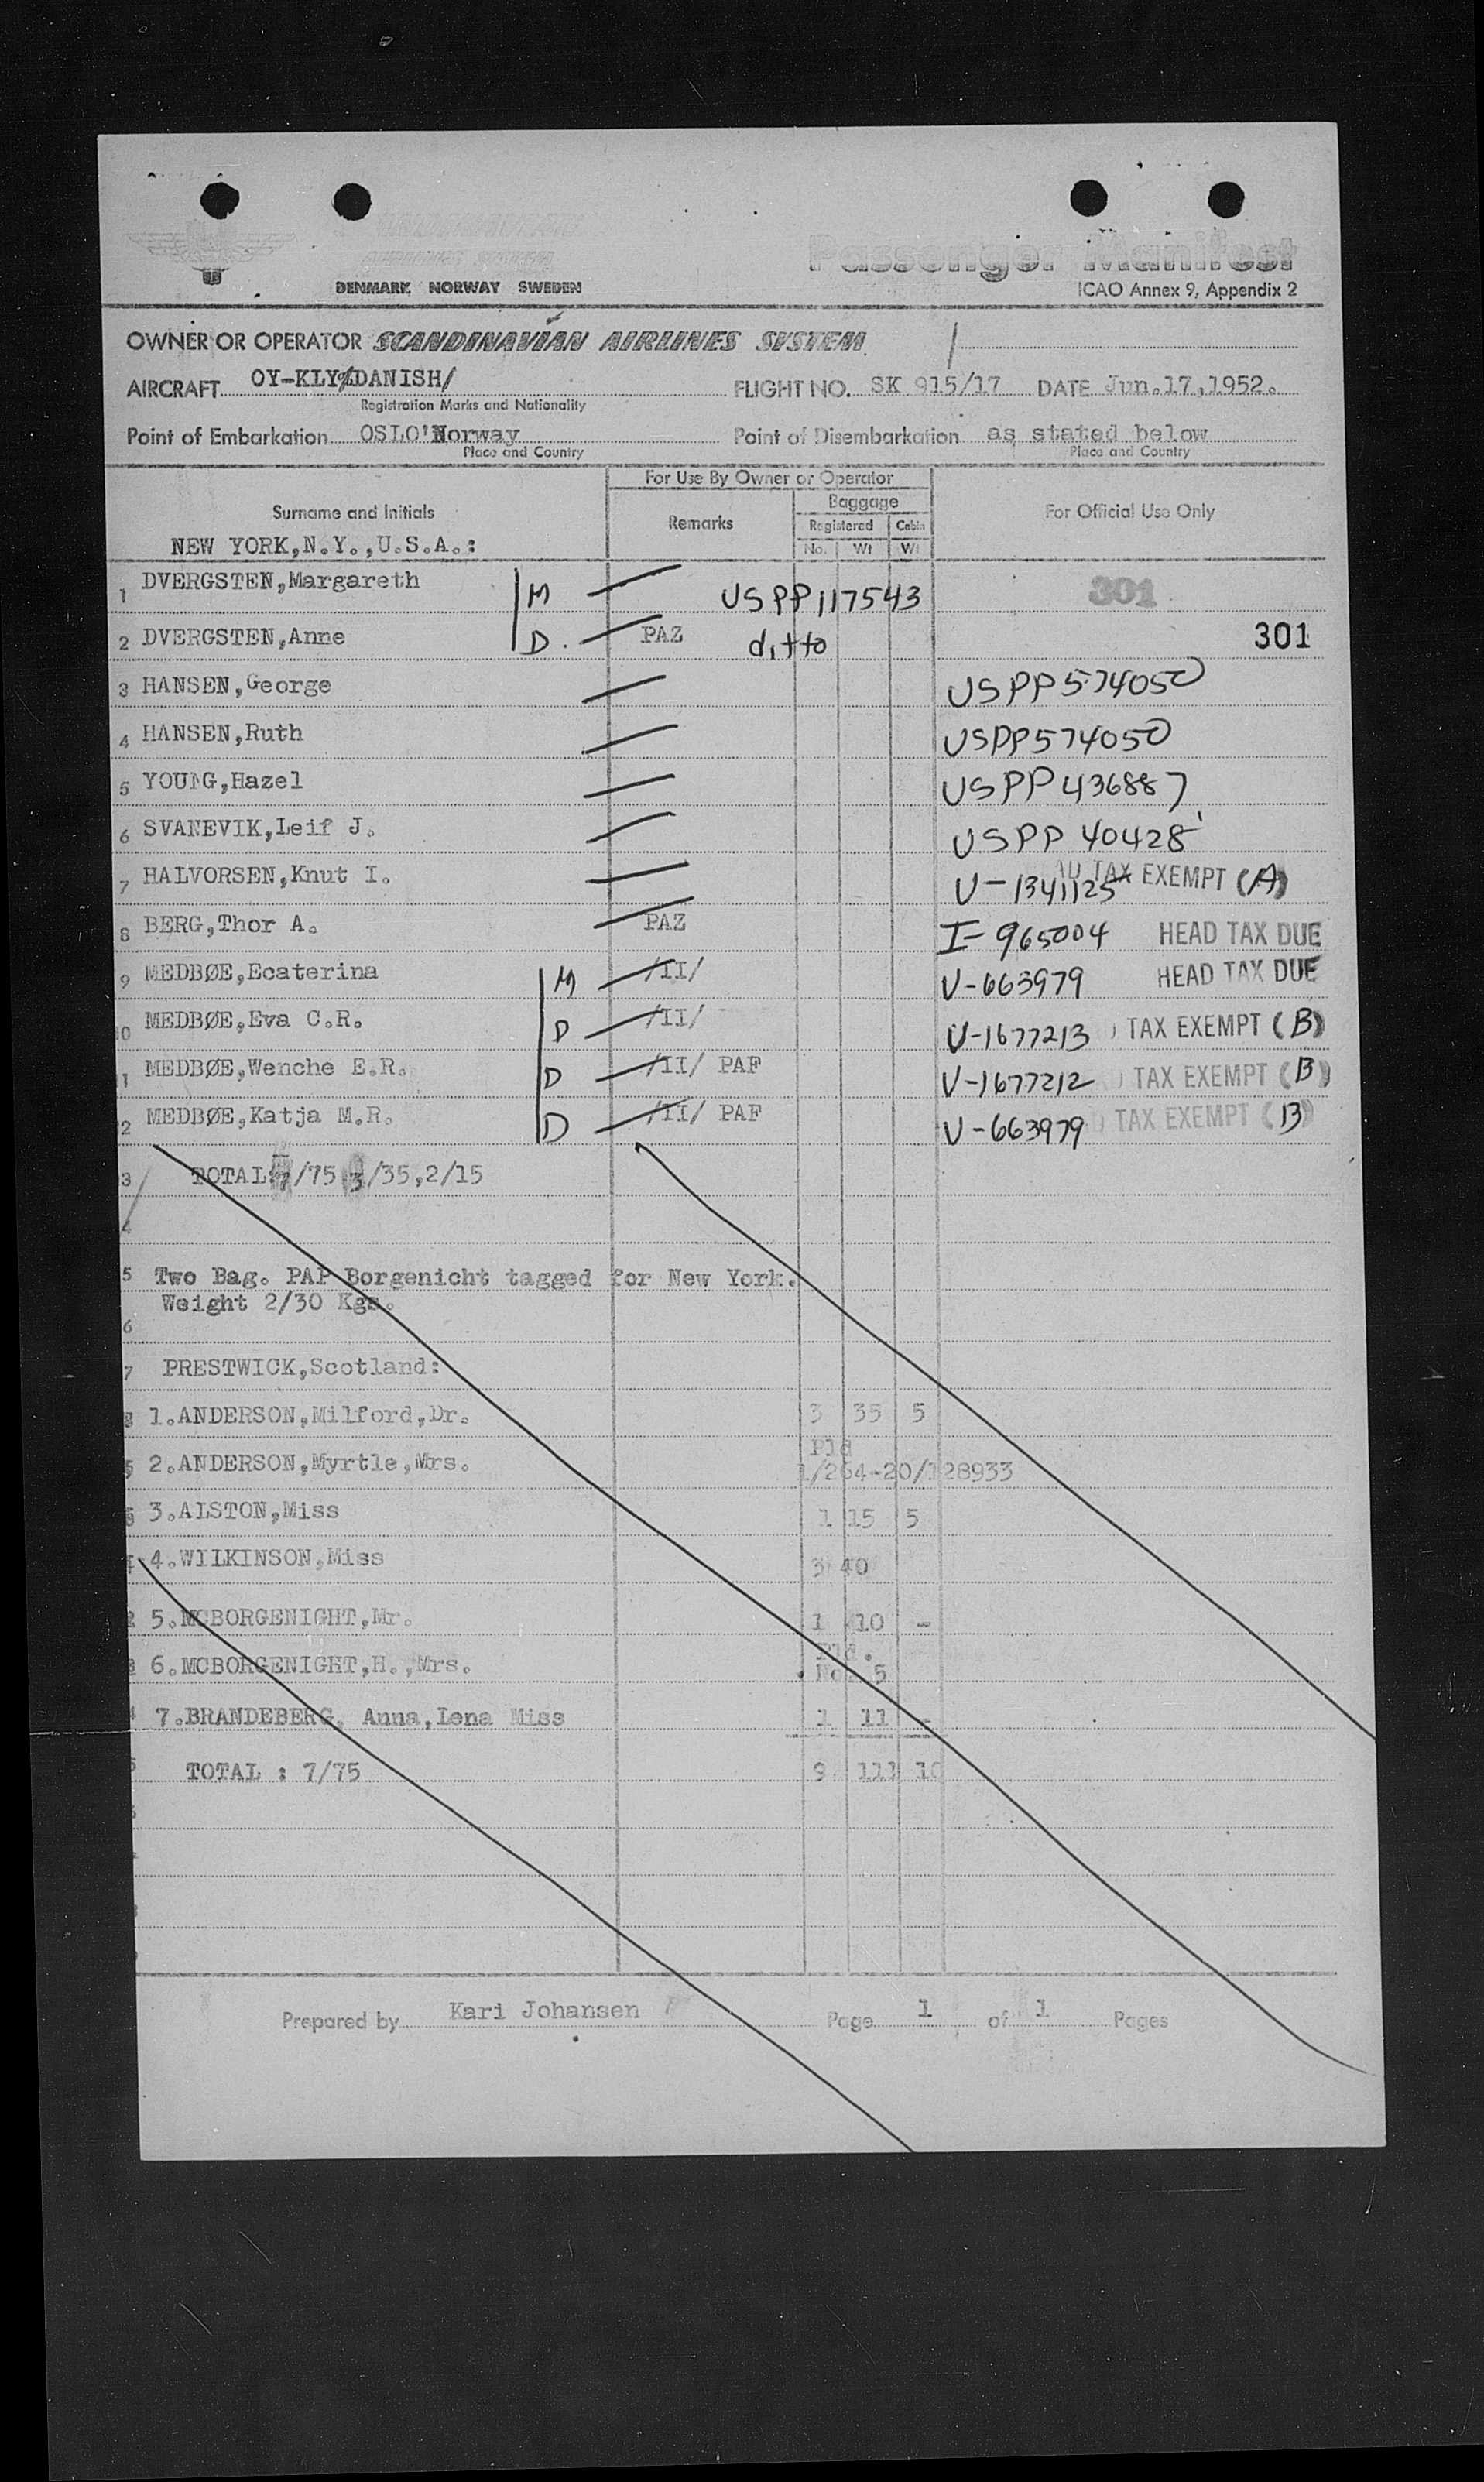 Passenger Manifest
DENMARK NORWAY SWEDEN
ICAO Annex 9, Appendix 2
OWNER OR OPERATOR SCANDINAVIAN AIRLINES SYSTEM
AIRCRAFT OY-KLY/DANISH/ FLIGHT NO. SK 915/17 DATE Jun.17,1952.
Registration Marks and Nationality
Point of Embarkation OSLO'Norway Point of Disembarkation as stated below
Place and Country Place and Country
For Use By Owner or Operator
Surname and Initials Remarks Baggage For Official Use Only
Registered Cabin
NEW YORK,N.Y.,U.S.A.: No. Wt Wt
1 DVERGSTEN,Margareth M USPP117543 301
2 DVERGSTEN,Anne D. PAZ ditto 301
3 HANSEN,George USPP574050
4 HANSEN,Ruth USPP574050
5 YOUNG,Hazel USPP436887
6 SVANEVIK,Leif J. USPP 40428
7 HALVORSEN,Knut I. V-1341125 AD TAX EXEMPT (A)
8 BERG,Thor A. PAZ I-965004 HEAD TAX DUE
9 MEDBØE,Ecaterina M /II/ V-663979 HEAD TAX DUE
0 MEDBØE,Eva C.R. D /II/ V-1677213 TAX EXEMPT (B)
1 MEDBØE,Wenche E.R. D /II/ PAF V-1677212 TAX EXEMPT (B)
2 MEDBØE,Katja M.R. D /II/ PAF V-663979 TAX EXEMPT (B)
3 TOTAL:7/75 3/35,2/15
4
5 Two Bag. PAP Borgenicht tagged for New York.
Weight 2/30 Kgs.
6
7 PRESTWICK,Scotland:
1.ANDERSON,Milford,Dr. 3 35 5
Pld
2.ANDERSON,Myrtle,Mrs. 1/264-20/128933
3.ALSTON,Miss 1 15 5
4.WILKINSON,Miss 3 40
5.MCBORGENIGHT,Mr. 1 10 -
Pld.
6.MCBORGENIGHT,H.,Mrs. No. 5
7.BRANDEBERG, Anna,Lena Miss 1 11 -
TOTAL : 7/75 9 111 10
Prepared by Kari Johansen Page 1 of 1 Pages